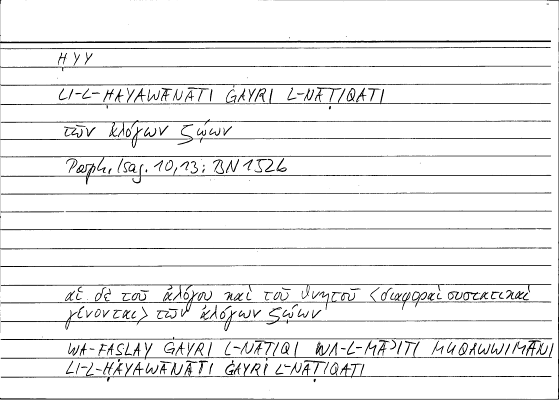 ḤYY
LI-L-ḤAYAWĀNĀTI ĠAYRI L-NĀṬIQATI
τῶν ἀλόγων ζῴων
Porph., Isag. 10,13: BN 152b
αἱ δὲ τοῦ ἀλόγου καὶ τοῦ θνητοῦ <διαφοραὶ συστατικαὶ
γίνονται> τῶν ἀλόγων ζῴων
WA-FAṢLAY ĠAYRI L-NĀṬIQI WA-L-MĀʾITI MUQAWWIMĀNI
LI-L-ḤAYAWĀNĀTI ĠAYRI L-NĀṬIQATI